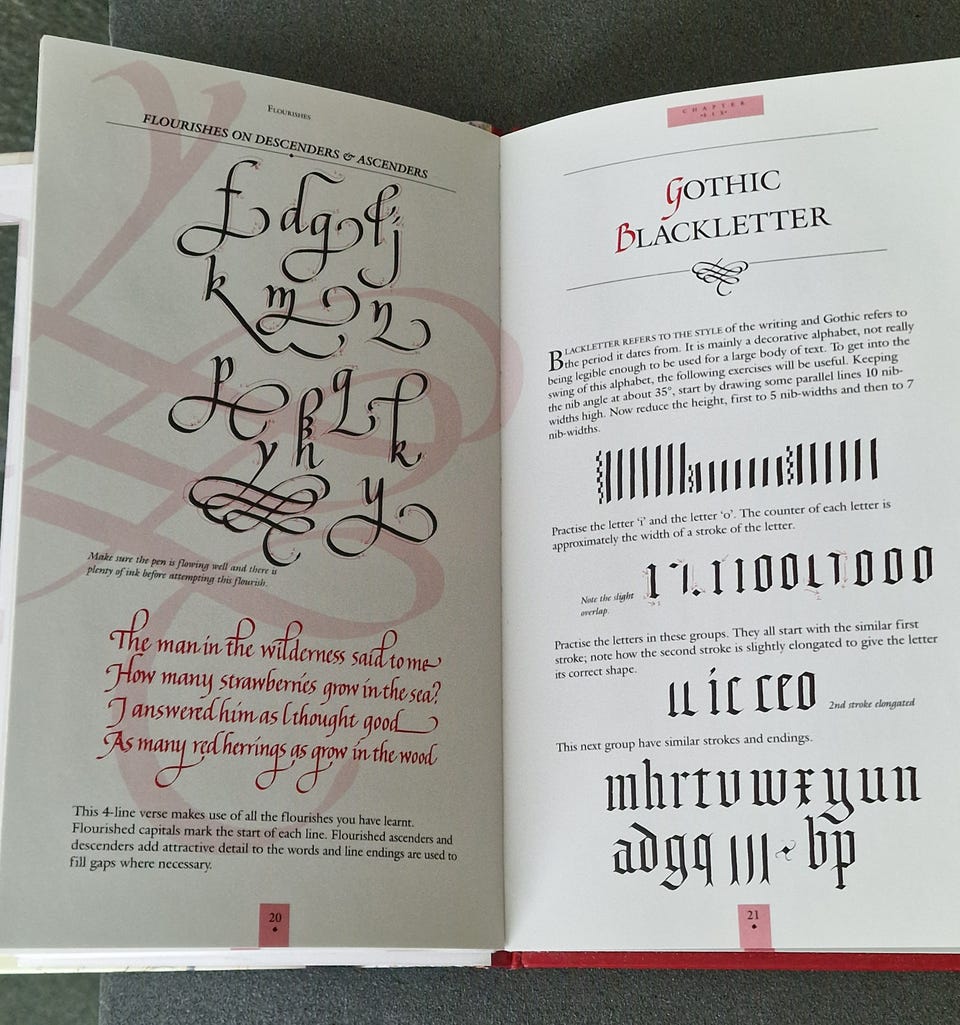 FLOURISHES
FLOURISHES ON DESCENDERS & ASCENDERS
f d g f j
k m n
p p q k
y h k
y
Make sure the pen is flowing well and there is
plenty of ink before attempting this flourish.
The man in the wilderness said to me
How many strawberries grow in the sea?
I answered him as I thought good
As many red herrings as grow in the wood
This 4-line verse makes use of all the flourishes you have learnt.
Flourished capitals mark the start of each line. Flourished ascenders and
descenders add attractive detail to the words and line endings are used to
fill gaps where necessary.
20
CHAPTER
•SIX•
GOTHIC
BLACKLETTER
BLACKLETTER REFERS TO THE STYLE of the writing and Gothic refers to
the period it dates from. It is mainly a decorative alphabet, not really
being legible enough to be used for a large body of text. To get into the
swing of this alphabet, the following exercises will be useful. Keeping
the nib angle at about 35°, start by drawing some parallel lines 10 nib-
widths high. Now reduce the height, first to 5 nib-widths and then to 7
nib-widths.
Practise the letter 'i' and the letter 'o'. The counter of each letter is
approximately the width of a stroke of the letter.
Note the slight
overlap.
Practise the letters in these groups. They all start with the similar first
stroke; note how the second stroke is slightly elongated to give the letter
its correct shape.
ic ceo
2nd stroke elongated
This next group have similar strokes and endings.
mhrtvwxyun
adgq bp
21